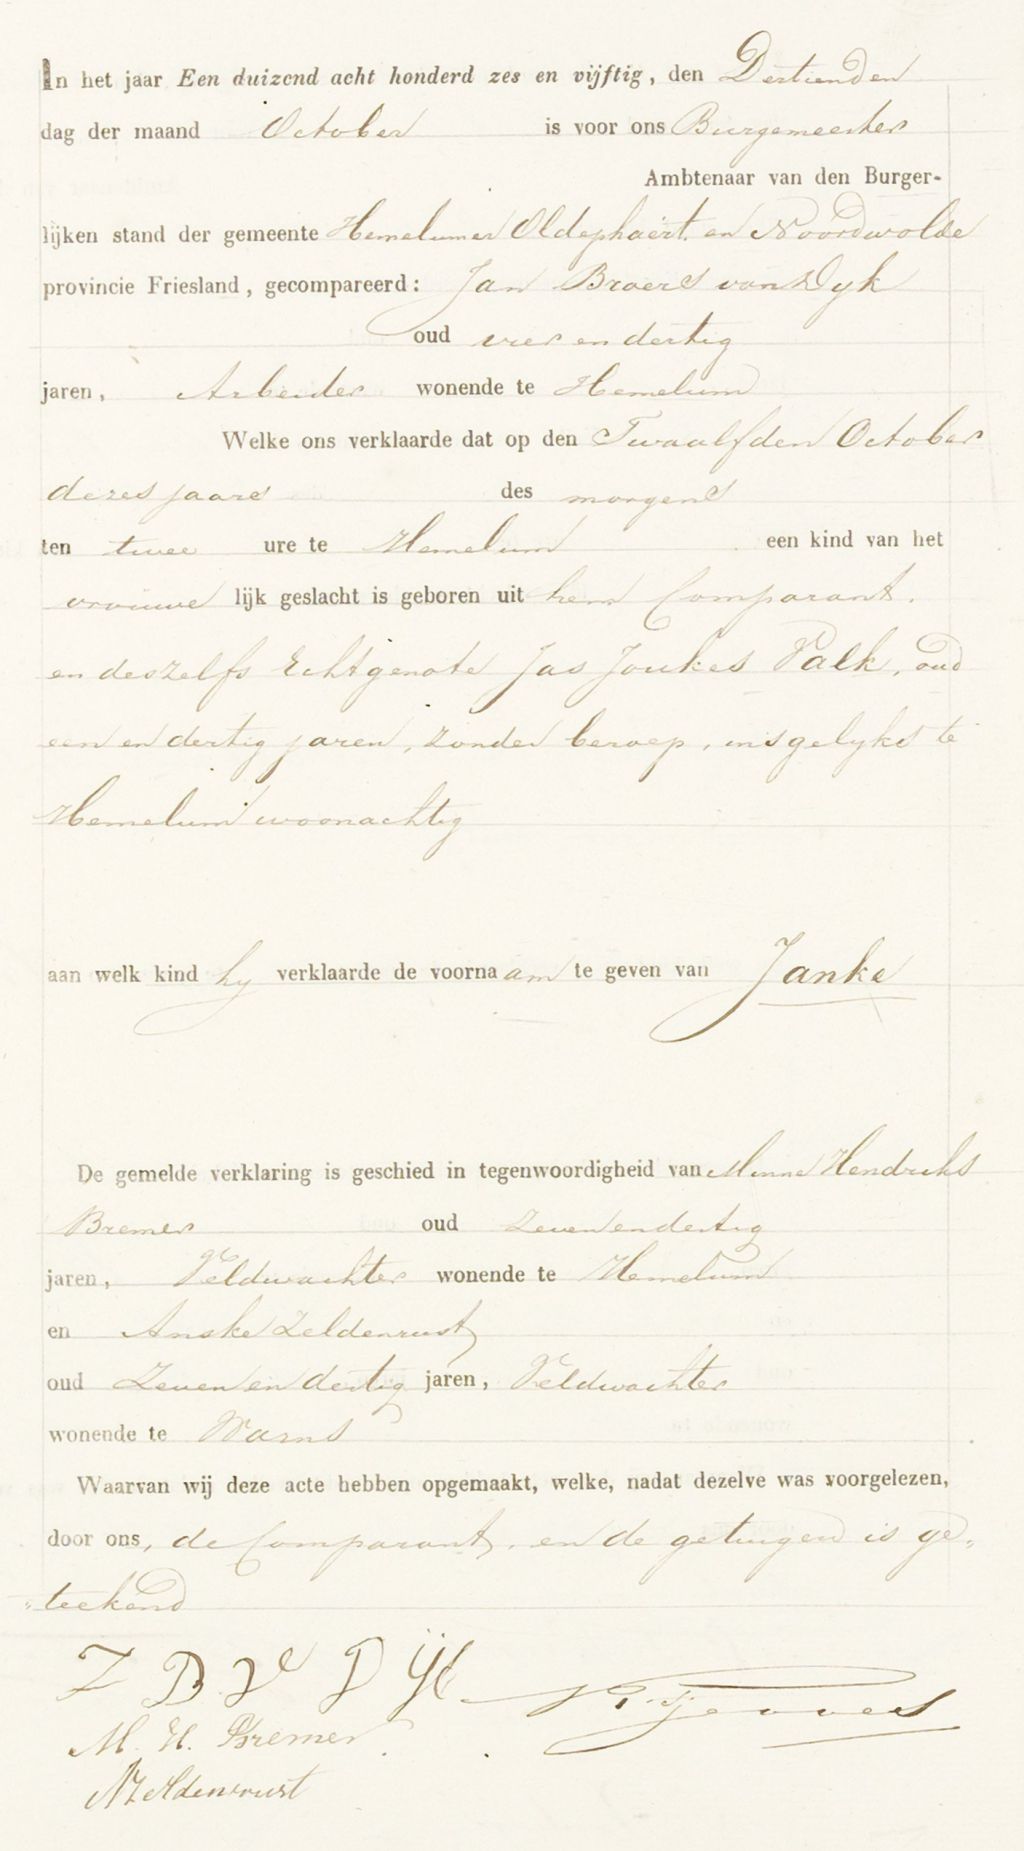 In het jaar Een duizend acht honderd zes en vijftig, den Dertienden
dag der maand October is voor ons Burgemeester
Ambtenaar van den Burger-
lijken stand der gemeente Hemelumer Oldephaert en Noordwolde
provincie Friesland, gecompareerd: Jan Broers van Dyk
oud vier en dertig
jaren, Arbeider wonende te Hemelum
Welke ons verklaarde dat op den Twaalfden October
dezes jaars des morgens
ten twee ure te Hemelum een kind van het
vrouwe lijk geslacht is geboren uit hem Comparant.
en deszelfs Echtgenote Jas Joukes Valk, oud
een en dertig jaren, zonder beroep, insgelyks te
Hemelum woonachtig
aan welk kind hy verklaarde de voornaam te geven van Janke
De gemelde verklaring is geschied in tegenwoordigheid van Minne Hendriks
Bremer oud zeven en dertig
jaren, Veldwachter wonende te Hemelum
en Anske Zeldenrust
oud Zeven en dertig jaren, Veldwachter
wonende te Warns
Waarvan wij deze acte hebben opgemaakt, welke, nadat dezelve was voorgelezen,
door ons, de Comparant, en de getuigen is ge„
„teekend
J B V D ijk
M. H. Bremer
A Zeldenrust